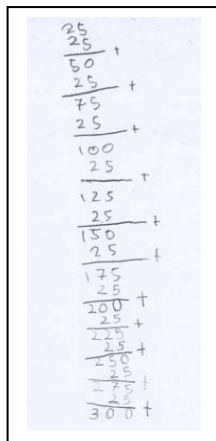 25
25 +
50
25 +
75
25 +
100
25 +
125
25 +
150
25 +
175
25 +
200
25 +
225
25 +
250
25 +
275
25 +
300